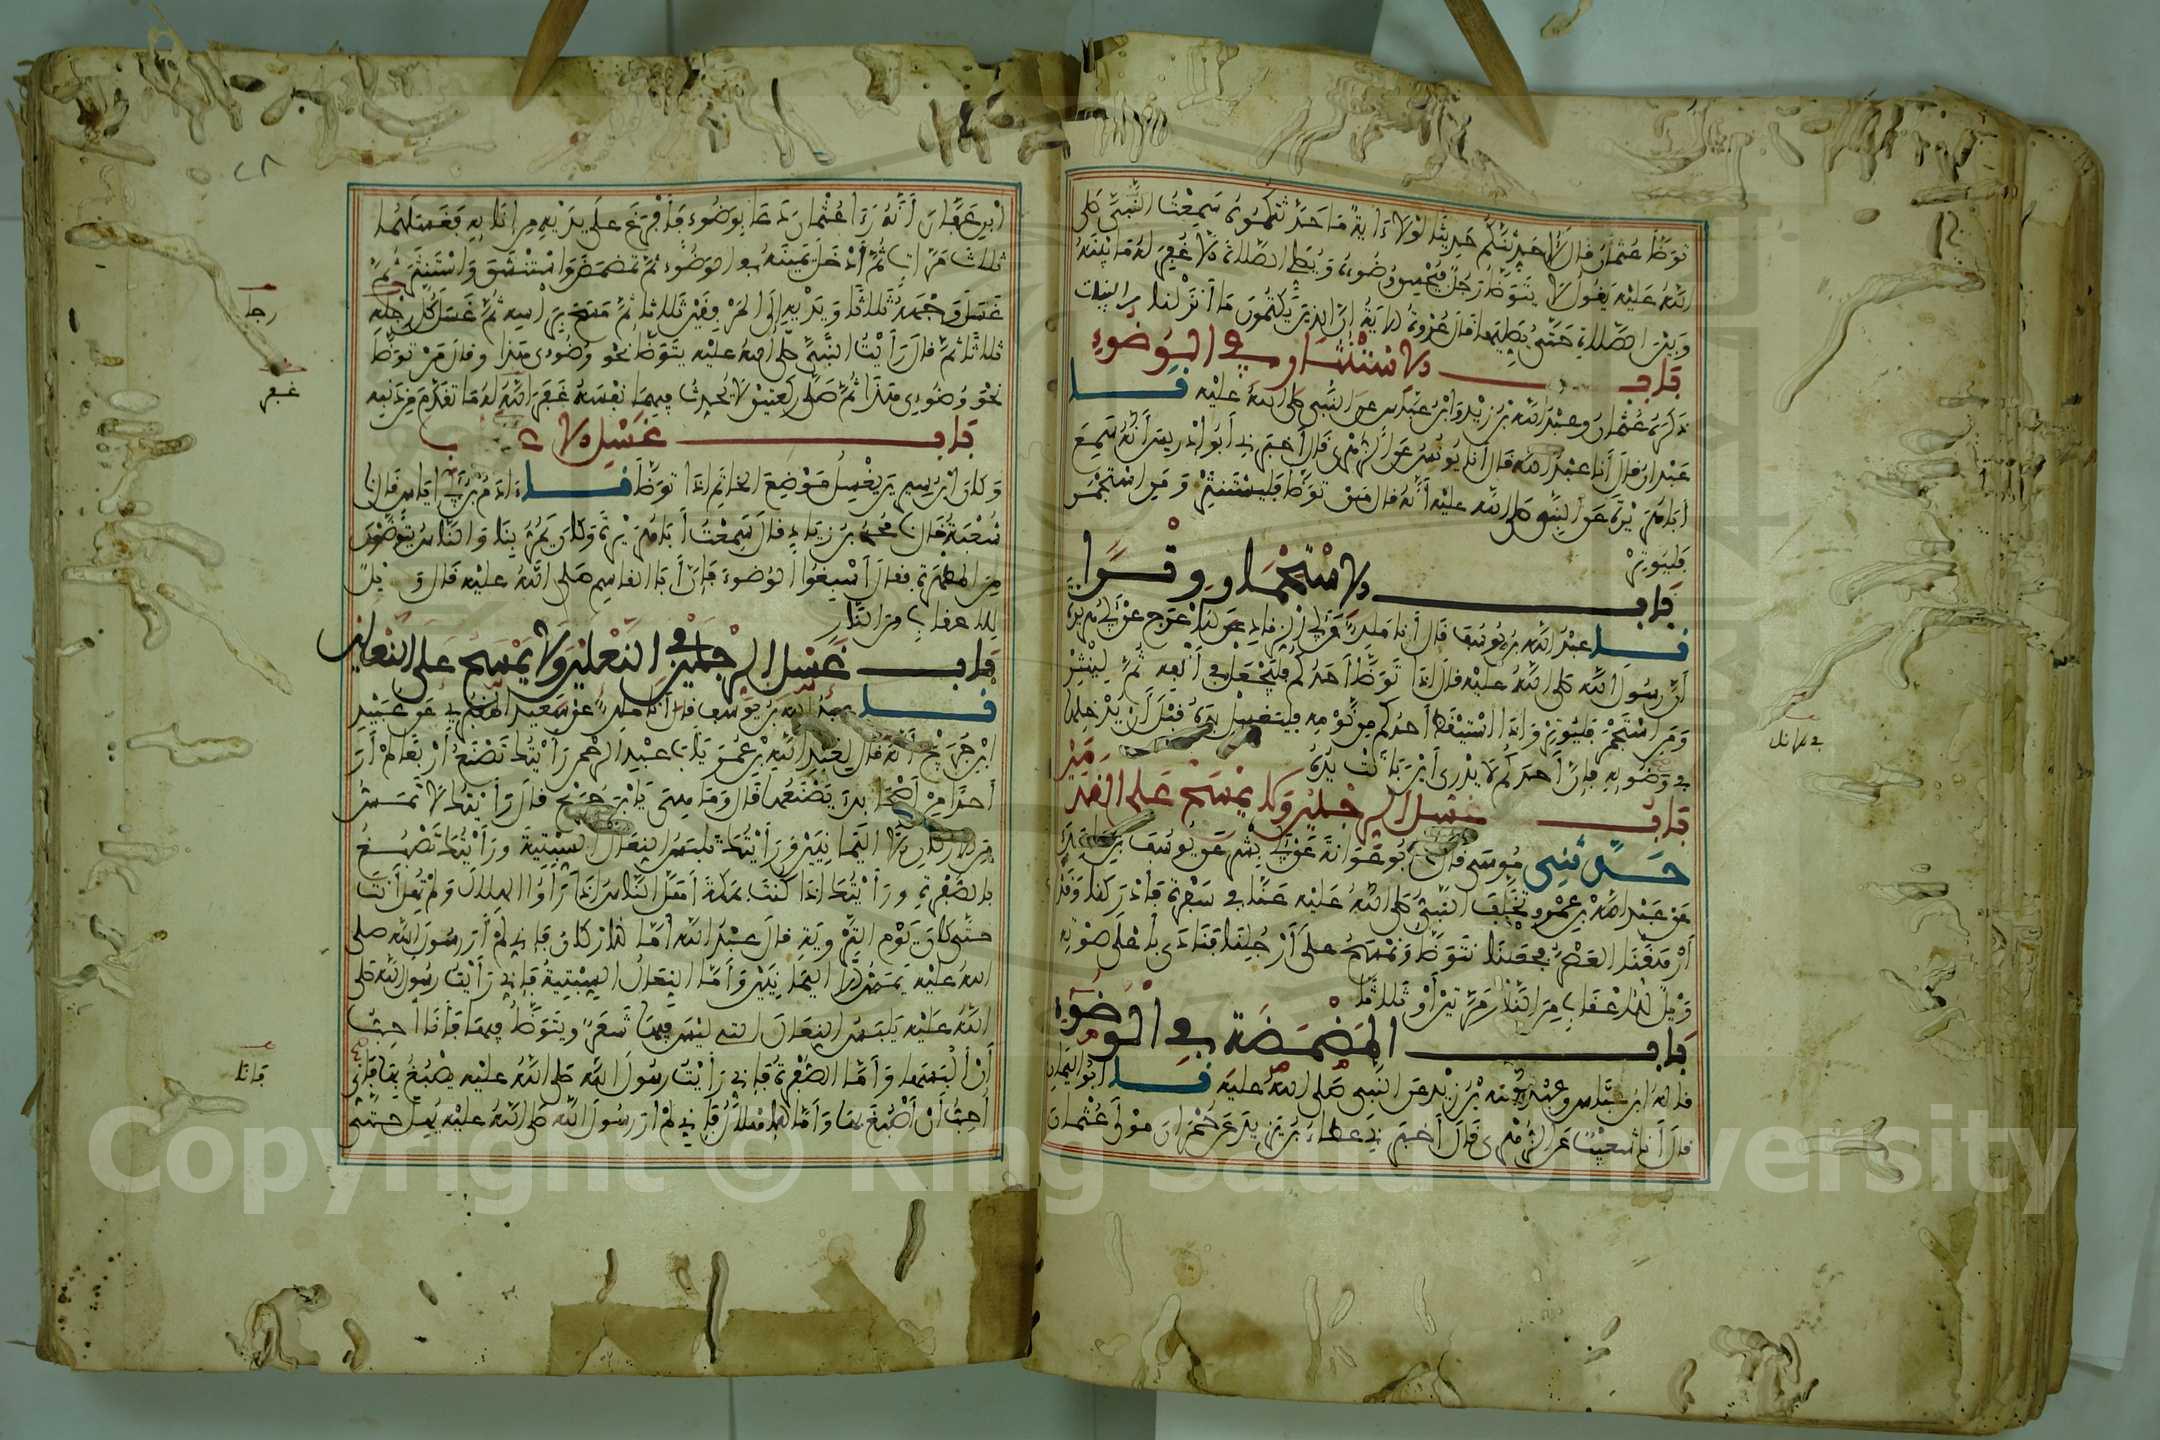 توضأ عثمان قال لأحدثنكم حديثا لولا ءاية ما حدثتكموه سمعت النبي صلى
الله عليه يقول لا يتوضأ رجل فيحسن وضوءه ويصلي الصلاة الا غفر له ما بينه
وبين الصلاة حتى يصليها قال عروة الاية ان الذين يكتمون ما أنزلنا من البينات
باب الاستنثار في الوضوء
ذكره عثمان وعبد الله بن زيد وابن عباس عن النبي صلى الله عليه
عبدان قال أنا عبد الله قال أنا يونس عن الزهري قال أخبرني أبو ادريس أنه سمع
أبا هريرة عن النبي صلى الله عليه أنه قال من توضأ فليستنثر ومن استجمر
فليوتر
باب الاستجمار وترا
عبد الله بن يوسف قال أنا ملك عن أبي الزناد عن الأعرج عن أبي هريرة
أن رسول الله صلى الله عليه قال اذا توضأ أحدكم فليجعل في أنفه ثم لينثر
ومن استجمر فليوتر واذا استيقظ أحدكم من نومه فليغسل يده قبل أن يدخلها
في وضوئه فان أحدكم لا يدري أين باتت يده
باب غسل الرجلين ولا يمسح على القدمين
حدثني موسى قال أبو عوانة عن أبي بشر عن يوسف بن
عن عبد الله بن عمرو تخلف النبي صلى الله عليه عنا في سفرة فأدركنا وقد
أرهقنا العصر فجعلنا نتوضأ ونمسح على أرجلنا فنادى بأعلى صوته
ويل للأعقاب من النار مرتين أو ثلاثا
باب المضمضة في الوضوء
قاله ابن عباس وعبد الله بن زيد عن النبي صلى الله عليه أبو اليمان
قال أنا شعيب عن الزهري قال أخبرني عطاء بن يزيد عن حمران مولى عثمان
في نهارنا
٢٨
ابن عفان أنه رءا عثمان دعا بوضوء فأفرغ على يديه من انائه فغسلهما
ثلاث مرات ثم أدخل يمينه في الوضوء ثم تمضمض واستنشق واستنثر ثم
غسل وجهه ثلاثا ويديه إلى المرفقين ثلاثا ثم مسح برأسه ثم غسل كل رجله
ثلاثا ثم قال رأيت النبي صلى الله عليه يتوضأ نحو وضوءي هذا وقال من توضأ
نحو وضوءي هذا ثم صلى ركعتين لا يحدث فيهما نفسه غفر الله له ما تقدم من ذنبه
باب غسل الاعقاب
وكان ابن سيرين يغسل موضع الخاتم اذا توضأ ءادم بن أبي اياس قال
شعبة قال محمد بن زياد قال سمعت أبا هريرة وكان يمر بنا والناس يتوضؤون
من المطهرة فقال أسبغوا الوضوء فإن أبا القاسم صلى الله عليه قال ويل
للاعقاب من النار
باب غسل الرجلين في النعلين ولا يمسح على النعلين
عبد الله بن يوسف قال أنا ملك عن سعيد المقبري عن عبيد
ابن جريج أنه قال لعبد الله بن عمر يا أبا عبد الرحمن رأيتك تصنع أربعا لم أر
أحدا من أصحابك يصنعها قال وما هي يا ابن جريج قال رأيتك لا تمس
من الاركان الا اليمانيين ورأيتك تلبس النعال السبتية ورأيتك تصبغ
بالصفرة ورأيتك اذا كنت بمكة أهل الناس اذا رأوا الهلال ولم تهل أنت
حتى كان يوم التروية قال عبد الله أما الاركان فإني لم أر رسول الله صلى
الله عليه يمس الا اليمانيين وأما النعال السبتية فإني رأيت رسول الله صلى
الله عليه يلبس النعال التي ليس فيها شعر ويتوضأ فيها فأنا أحب
أن ألبسها وأما الصفرة فإني رأيت رسول الله صلى الله عليه يصبغ بها فإني
أحب أن أصبغ بها وأما الاهلال فإني لم أر رسول الله صلى الله عليه يهل حتى
رجل
غفر
فأنا
Copyright © King Saud University